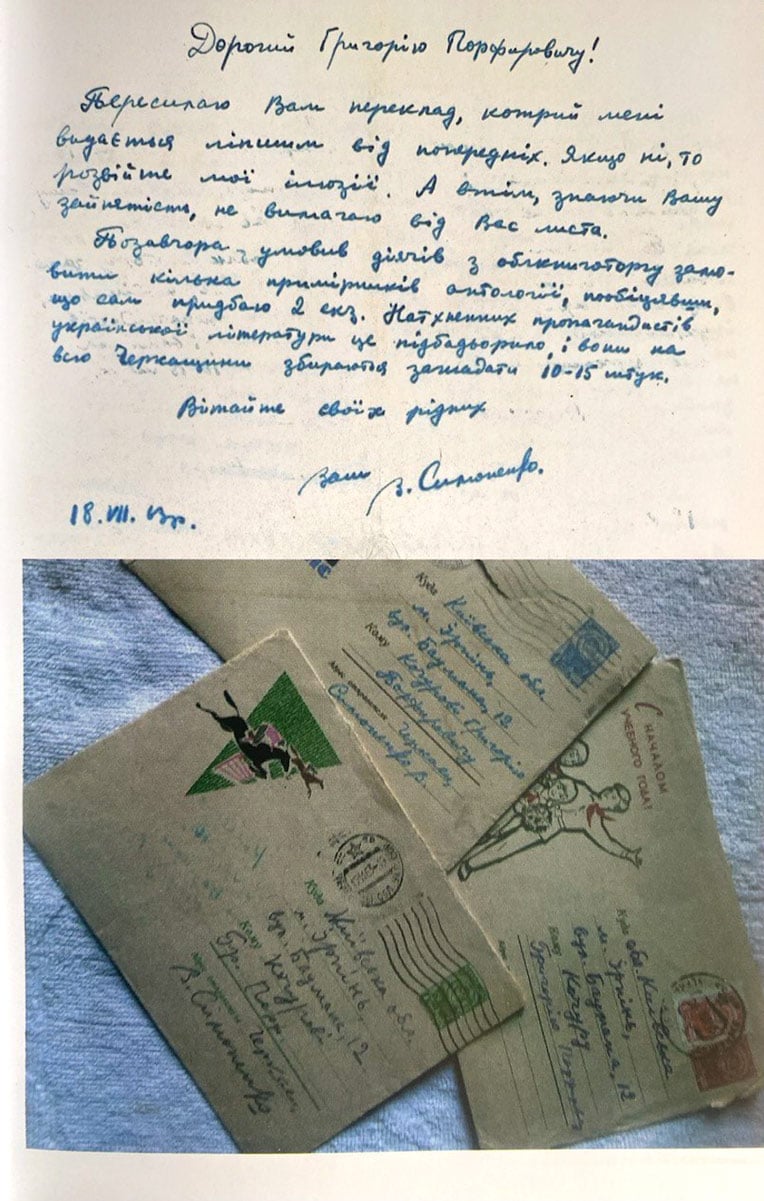 Дорогий Григорію Порфировичу!
Пересилаю Вам переклад, котрий мені
видається ліпшим від попередніх. Якщо ні, то
розвійте мої ілюзії. А втім, знаючи Вашу
зайнятість, не вимагаю від Вас листа.
Позавчора умовив діячів з облкниготоргу замо-
вити кілька примірників антології, пообіцявши,
що сам придбаю 2 екз. Натхненних пропагандистів
української літератури це підбадьорило, і вони на
всю Черкащину збираються замадати 10-15 штук.
Вітайте своїх рідних
Ваш В. Симоненко.
18.VII. 63р.
Куда Київська обл
м. Ірпінь,
вул. Баумана, 12
Кому Кочурові Григорію
Порфировичу
Адрес отправителя Черкаси
Симоненко В.
Куда Київська обл.
м. Ірпінь,
вул. Баумана, 12
Кому Кочурові
Гр. Порф.
Черкаси
В. Симоненко
С НАЧАЛОМ
УЧЕБНОГО ГОДА!
Куда обл. Київська
м. Ірпінь,
вул. Баумана, 12
Кому Кочуру
Григорію